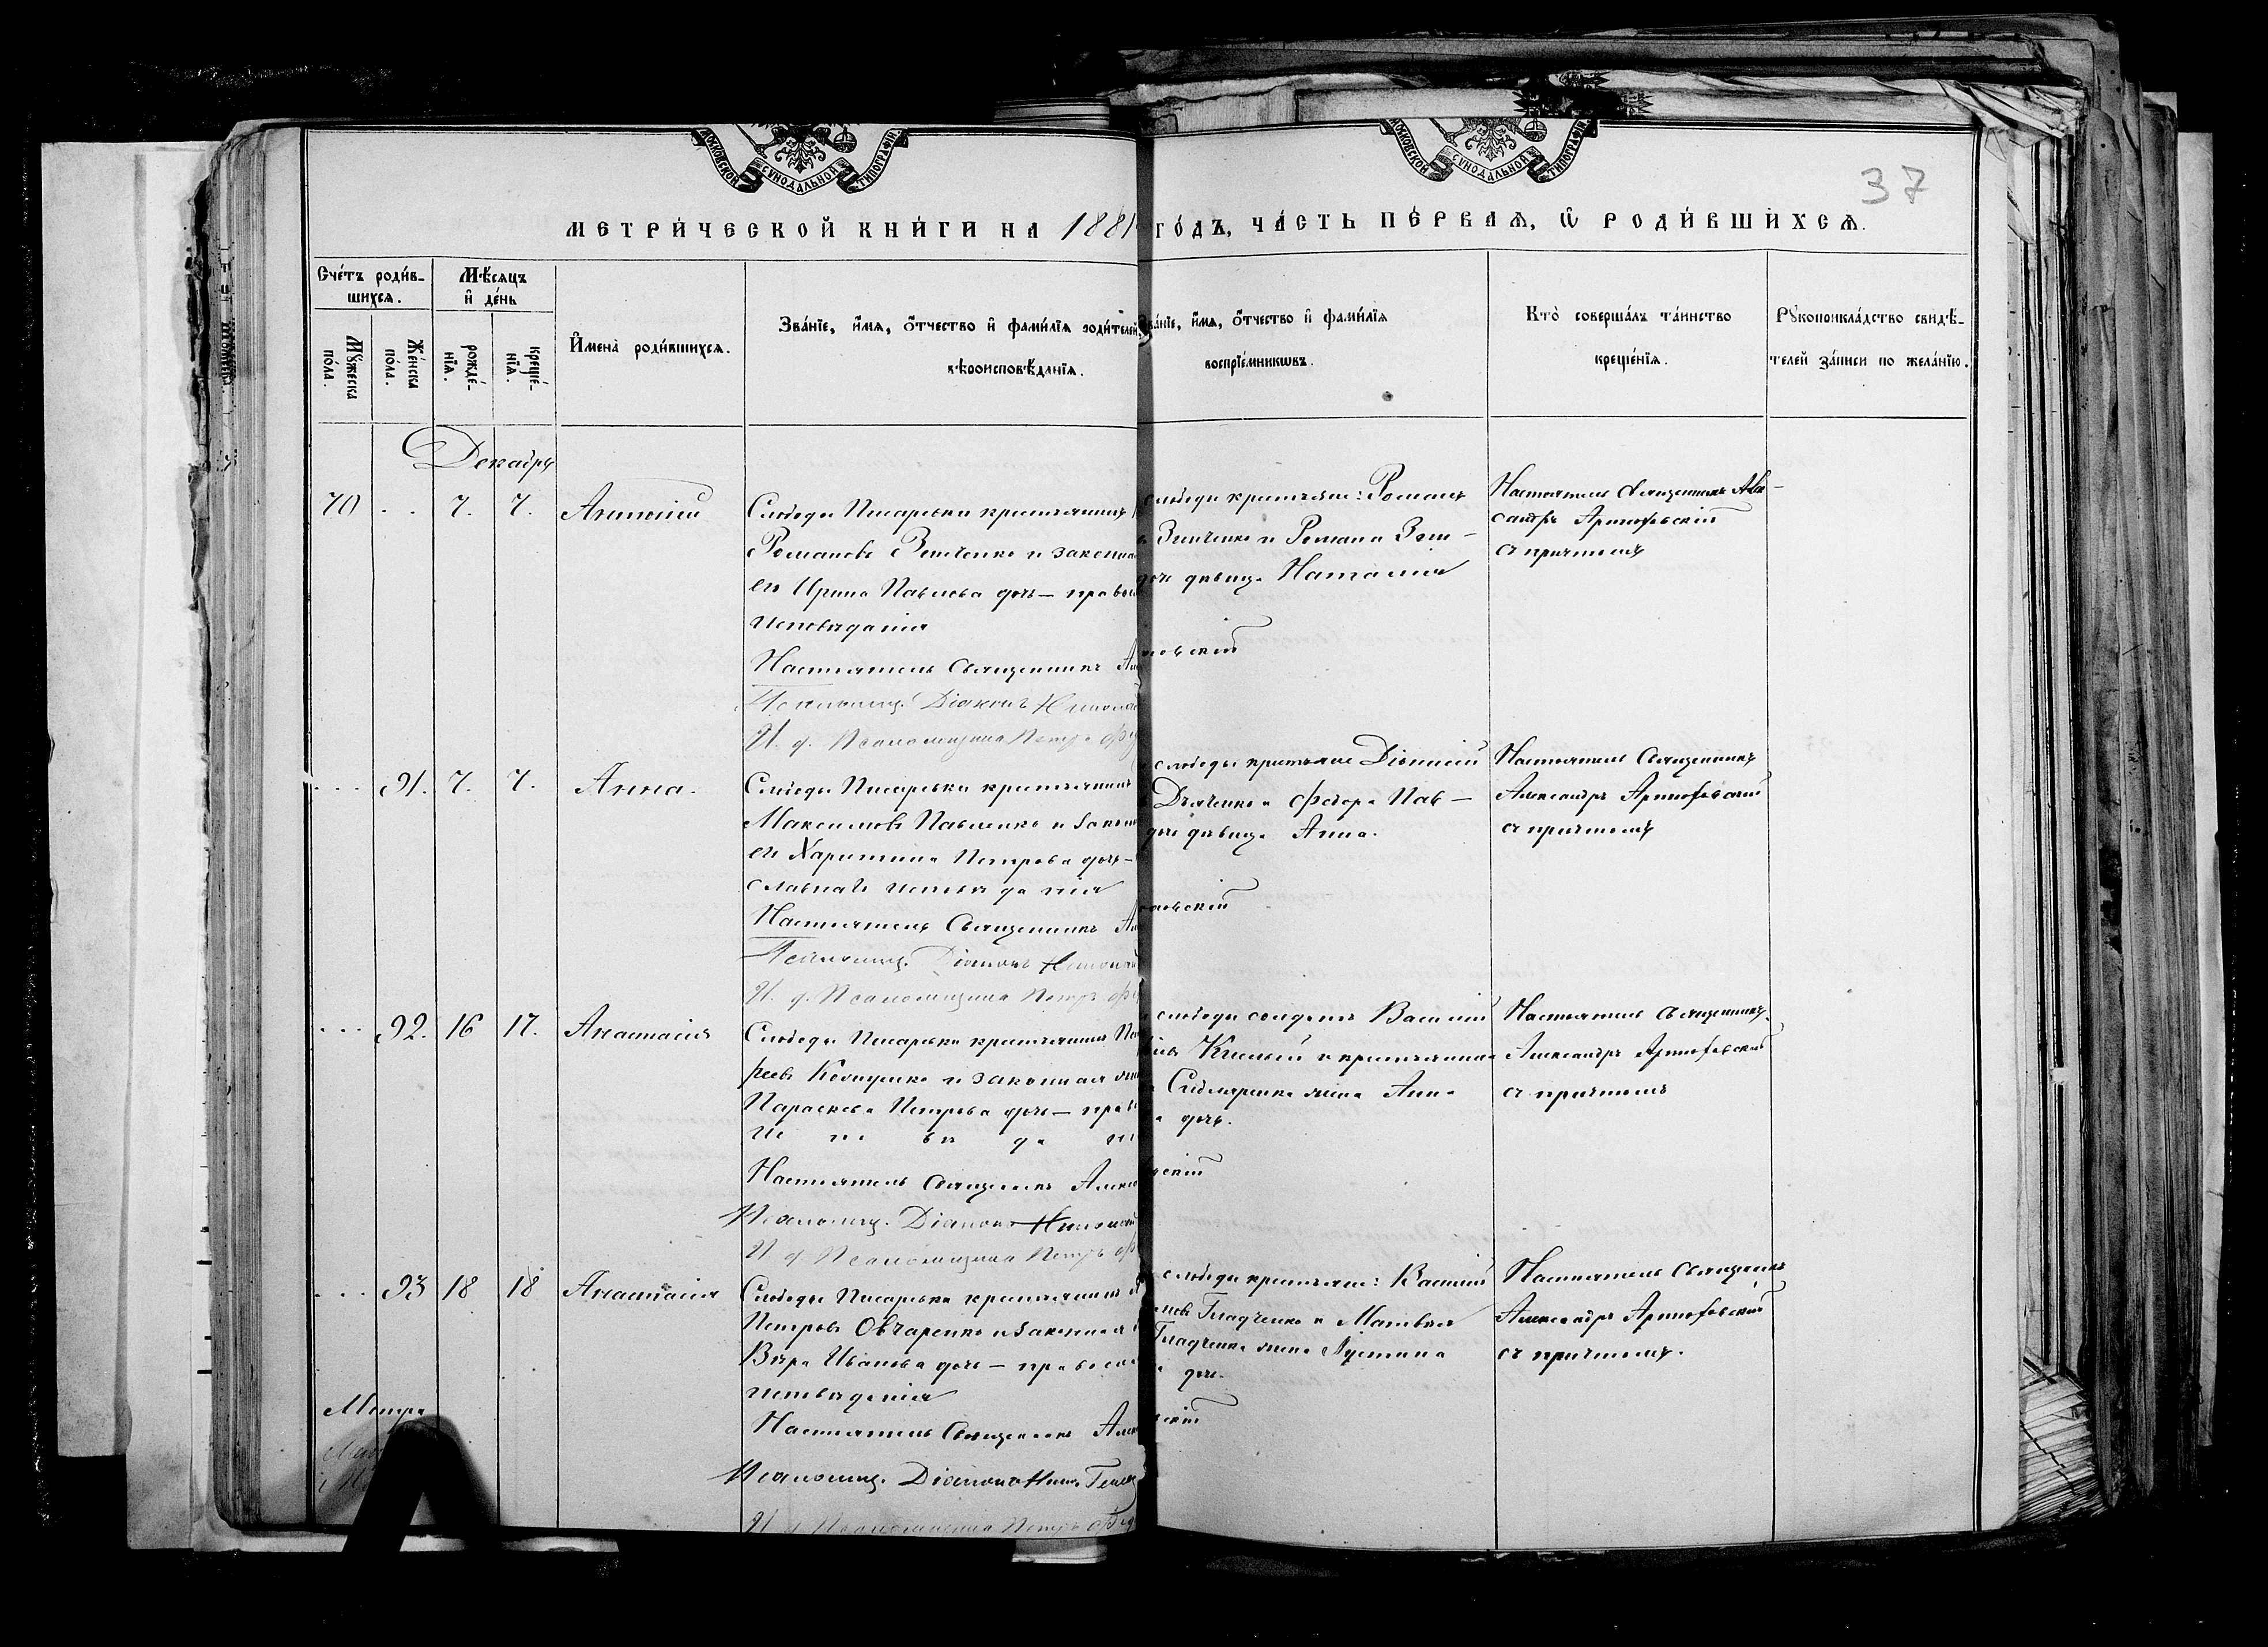 МОСКОВСКОЙ СѴНОДАЛЬНОЙ ТИПОГРАФІИ
МОСКОВСКОЙ СѴНОДАЛЬНОЙ ТИПОГРАФІИ
37
МЕТРИ́ЧЕСКОЙ КНИ́ГИ НА 1881 ГО́ДЪ, ЧА́СТЬ ПЕ́РВАѦ, Ѡ РОДИ́ВШИХСѦ.
Сче́тъ роди́в-
шихсѧ.
Мꙋ́жеска по́ла.
Же́нска по́ла.
Мѣ́сѧцъ
и҆ де́нь
рожде́-
нїѧ.
креще́-
нїѧ.
И҆мена̀ роди́вшихсѧ.
Зва́нїе, и҆́мѧ, ѻ҆́тчество и҆ фами́лїѧ роди́телей,
вѣроисповѣ́данїѧ.
Зва́нїе, и҆́мѧ, ѻ҆́тчество и҆ фами́лїѧ
воспрїе́мникѡвъ.
Кто̀ соверша́лъ та́инство
креще́нїѧ.
Рꙋкоприкла́дство свидѣ́-
телей за́писи по жела́нїю.
Декабрь
70 . . 7. 7. Антоній
Слободы Писарьвки крестьянинъ
Романовъ Зинченко и законная
его Ирина Павлова дочь — правос
исповѣданія
Настоятель Священникъ
Псаломщ. Діаконъ Никола
И. д. Псаломщика Петръ
слободы крестьяне: Романъ
Зинченко и Романа Зин —
дочь дѣвица Наталія
овскій
Настоятель Священникъ Алек —
сандръ Артюховскій
съ причтомъ
. . . 91. 7. 7. Анна.
Слободы Писарьвки крестьянинъ
Максимовъ Павленко и закон
его Харитина Петрова дочь —
славнаго исповѣданія
Настоятель Священникъ
Псаломщ. Діаконъ Николай
И. д. Псаломщика Петръ
слободы крестьяне Діонисій
Дяченко и Ѳедора Пав —
дочь дѣвица Анна.
овскій
Настоятель Священникъ
Александръ Артюховскій
съ причтомъ
. . . 92. 16 17. Анастасія
Слободы Писарьвки крестьянинъ
реевъ и законная
Параскева Петрова дочь — прав
Ис по вѣ да ні
Настоятель Священникъ Алекс
Псаломщ. Діаконъ Николай
И. д. Псаломщика Петръ
слободы солдатъ Василій
Кислый и крестьянина
жена Анна
дочь.
скій
Настоятель Священникъ
Александръ Артюховскій
съ причтомъ
. . . 93 18 18 Анастасія
Слободы Писарьвки крестьянинъ
Петровъ Овчаренко и законная
Вѣра Иванова дочь — правосла
исповѣданія
Настоятель Священникъ Алек
Псаломщ. Діаконъ Ник.
И. д. Псаломщика Петръ
слободы крестьяне: Василій
Гладченко и Матвѣя
Гладченка жена Іустина
дочь.
скій
Настоятель Священникъ
Александръ Артюховскій
съ причтомъ.
Метри